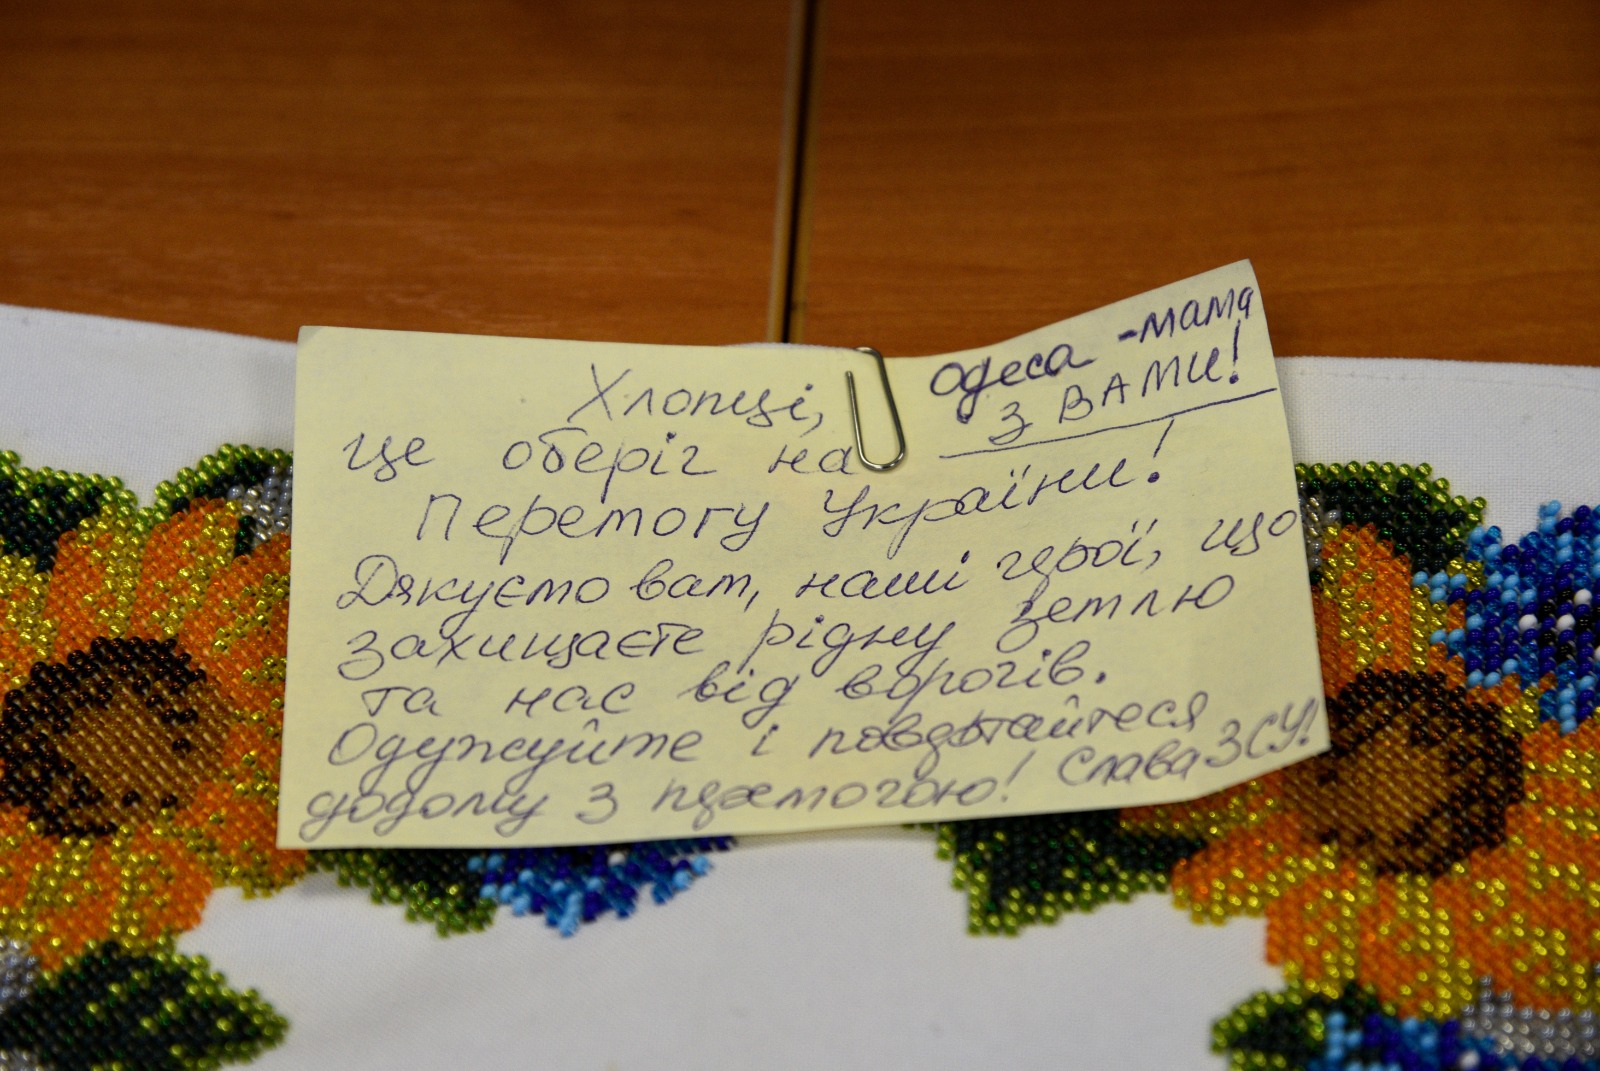 Одеса-мама
З ВАМИ!
Хлопці,
це оберіг на
Перемогу України!
Дякуємо вам, наші герої, що
захищаєте рідну землю
та нас від ворогів.
Одужуйте і повертайтеся
додому з перемогою! Слава ЗСУ!